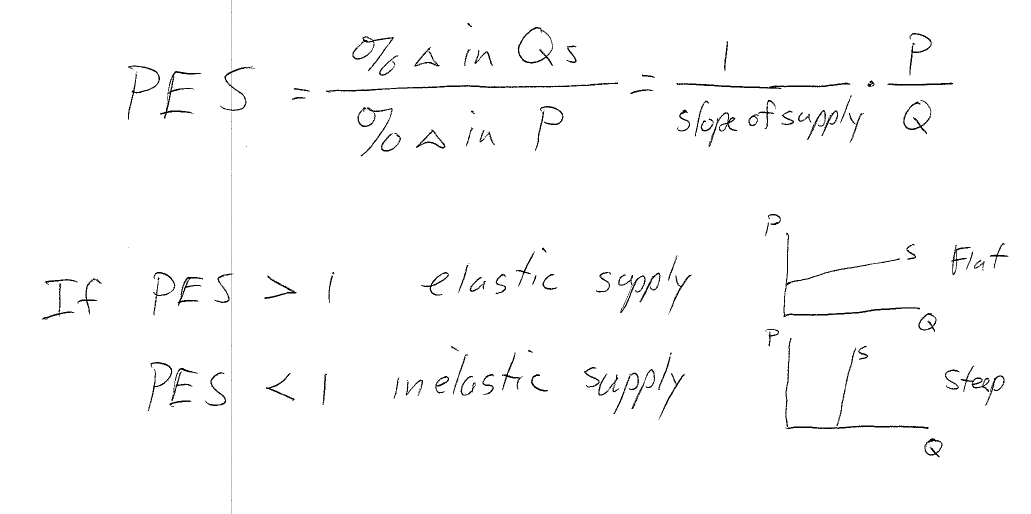 PES = %Δ in Qs / %Δ in P = 1 / slope of supply · P / Q
If PES > 1 elastic supply
P S Flat
Q
PES < 1 inelastic supply
P S Steep
Q